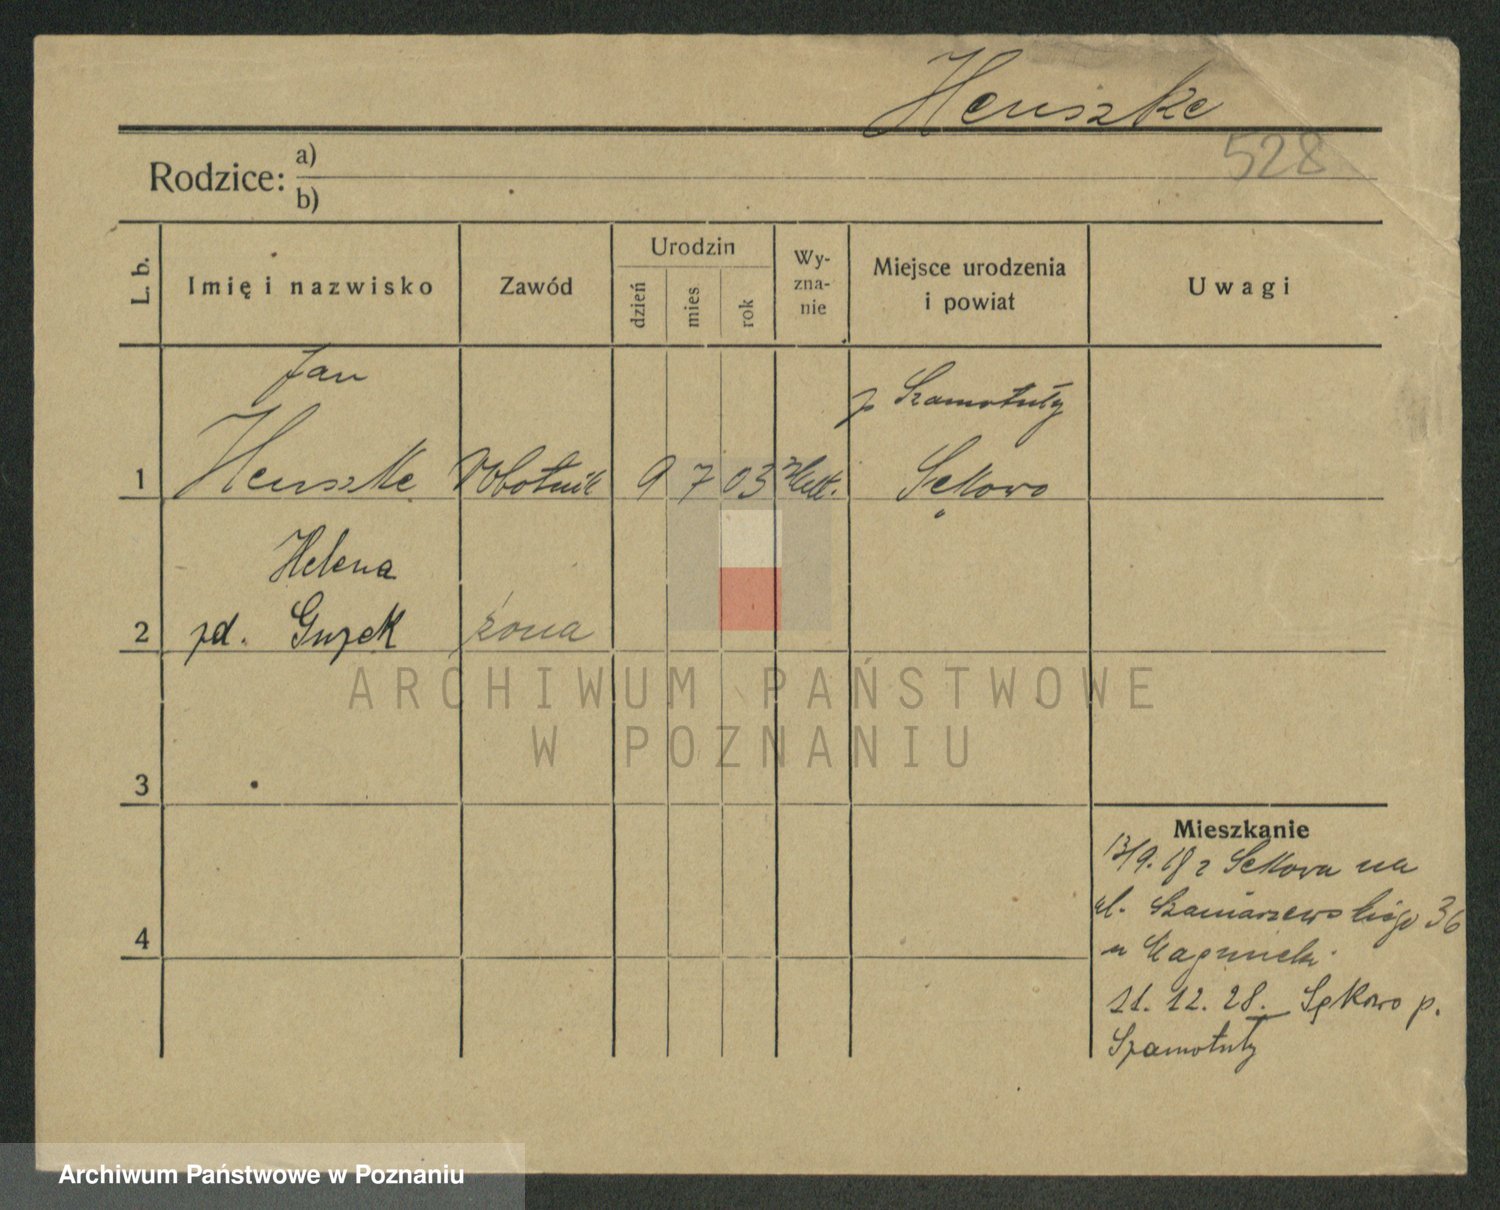 Heuszke
528
Rodzice: a)
b)
L. b. Imię i nazwisko Zawód Urodzin dzień mies rok Wy-zna-nie Miejsce urodzenia i powiat Uwagi
Jan
p Szamotuły
1 Heuszke Robotnik 9 7 03 Sękowo
Helena
2 zd. Guzek żona
ARCHIWUM PAŃSTWOWE
W POZNANIU
3
Mieszkanie
13/9. 18 z Sękowa na
ul. Szamarzewskiego 36
4
u
21. 12. 28. Sękowo p.
Szamotuły
Archiwum Państwowe w Poznaniu